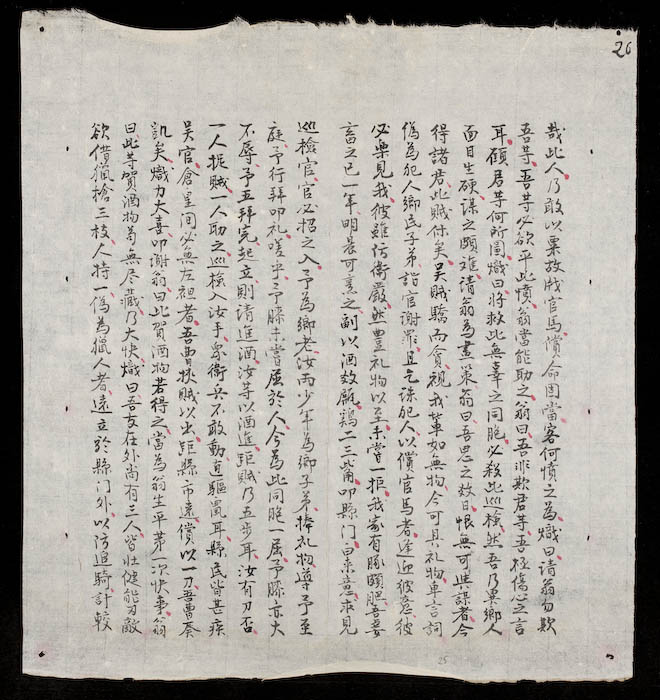 26
哉此人乃敢以栗故戕官馬償命固當客何憤之為熾曰請翁勿欺
吾等吾等必欲平此憤翁當能助之翁曰吾非欺君等吾極傷心之言
耳顧君等何所圖熾曰將救此無辜之同胞必殺此巡檢然吾乃異鄉人
面目生硬謀之頗難請翁為畫策翁曰吾思之放日恨無可與謀者今
得諸君此賊休矣吳賊驕而貪視我輩如無物今可具礼物卑言詞
偽為犯人鄉民子弟詣官謝罪且乞誅犯人以償官馬者逢迎彼意彼
必樂見我彼雖仿衛嚴然豐礼物以至未嘗一拒我家有豚頗肥吾妻
畜之已一年明晨可烹之副以酒放瓶鷄二三觜叩縣门白來意求見
巡檢官官必招之入予為鄉老汝兩少年為鄉子弟捧礼物導予至
庭予行拜叩礼嗟乎予膝未嘗屈於人今為此同胞一屈予膝亦大
不辱予五拜完起立則請進酒汝等以酒進距賊乃五步耳汝有刀否
一人扼賊一人助之巡檢入汝手衆衛兵不敢動直驅鼠耳縣民皆甚疾
吳官倉皇间必無左袒者吾曹挾賊以出距縣市遠償以一刀吾曹奏
凱矣熾力大喜叩謝翁曰此賀酒物若得之當為翁生平第一次快事翁
曰此等賀酒物苟無尽藏乃大快熾曰吾友在外尚有三人皆壮健能刃敵
欲借獵槍三枝人持一偽為獵人者遠立於縣门外以防追騎計較
25